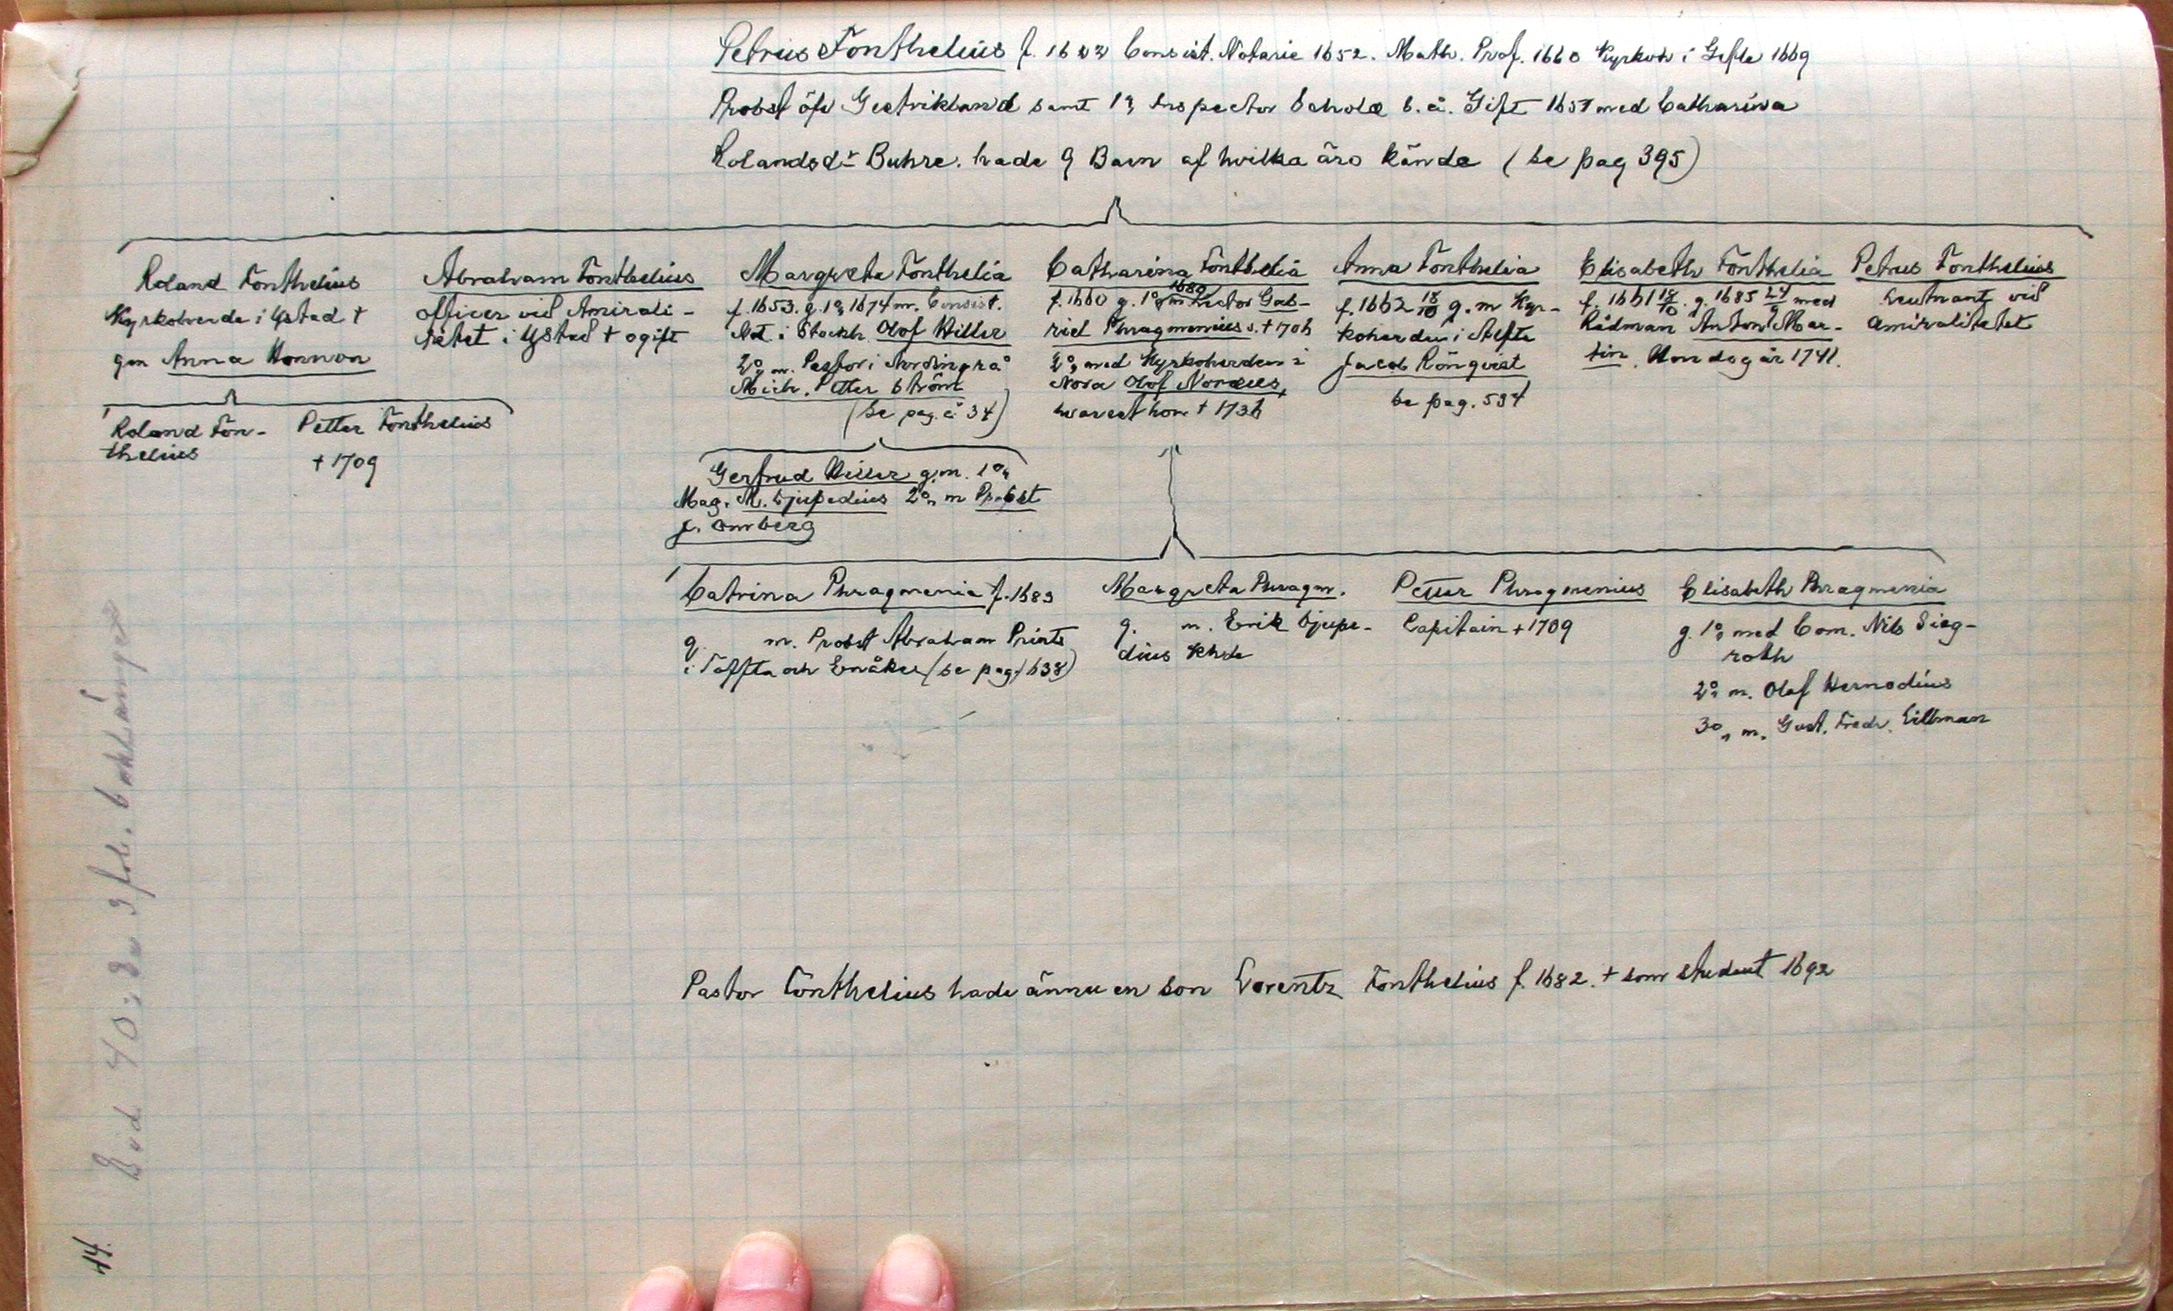 Petrus Fonthelius f. 1622 Consist. Notarie 1652. Math. Prof. 1660 Kyrkoh i Gefle 1669
Probst öfv Gestrikland samt 1º, Inspector Schole s. å. Gift 1651 med Catharina
Rolandsdr Buhre. hade 9 Barn af hvilka äro kände (se pag 395)
Roland Fonthelius
Kyrkoherde i Ystad †
gm Anna Honnon
Abraham Fonthelius
officer vid Amirali-
tetet i Ystad † ogift
Margreta Fonthelia
f. 1653. g. 1º, 1674 m. Consist.
Not. i Stockh. Olof Hiller
2º, m. Pastor i Nordingrå
Mich. Petter Ström
(se pag. å 34)
Catharina Fonthelia
1680
f. 1660 g. 1º m Rector Gab-
riel Phragmenius s. † 1706
2º, med Kyrkoherden i
Nora Olof Noræus,
hwarest hon † 1736
Anna Fonthelia
f. 1662 18/10 g. m Kyr-
koherden i Alfta
Jacob Rönqvist
se pag. 534
Elisabeth Fonthelia
f. 1661 18/10. g. 1685 24/9 med
Rådman Anton Mar-
tin. Hon dog år 1741.
Petrus Fonthelius
Leutnant vid
Amiralitetet
Roland Fon-
thelius
Petter Fonthelius
† 1709
Gertrud Hiller g.m. 1º,
Mag. M. Djupedius 2º, m Probst
J. Omberg
Catrina Phragmenia f. 1683
g. m. Probst Abraham Prints
i Toffta och Enåker (se pag. 638)
Margreta Phragm.
g. m. Erik Djupe-
dius Khde
Petter Phragmenius
Capitain † 1709
Elisabeth Phragmenia
g. 1º, med Com. Nils Sieg-
roth
2º, m. Olof Hernodius
3º, m. Gust. Fredr. Lillman
Pastor Fonthelius hade ännu en son Lorentz Fonthelius f. 1682. † som student 1692
44.